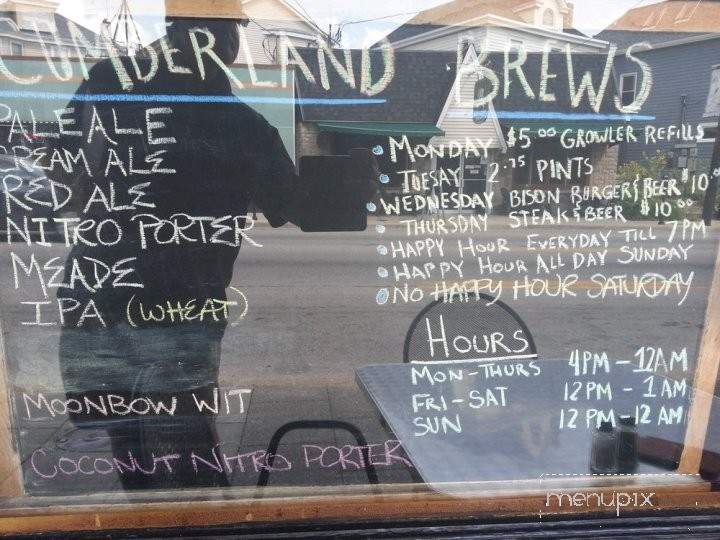 CUMBERLAND BREWS
PALE ALE
CREAM ALE
RED ALE
NITRO PORTER
MEADE
IPA (WHEAT)
MOONBOW WIT
COCONUT NITRO PORTER
MONDAY $5.00 GROWLER REFILLS
TUESAY 2.75 PINTS
WEDNESDAY BISON BURGER & BEER $10.00
THURSDAY STEAK & BEER $10.00
HAPPY HOUR EVERYDAY TILL 7PM
HAPPY HOUR ALL DAY SUNDAY
NO HAPPY HOUR SATURDAY
HOURS
MON-THURS 4PM-12AM
FRI-SAT 12PM-1AM
SUN 12PM-12AM
menupix